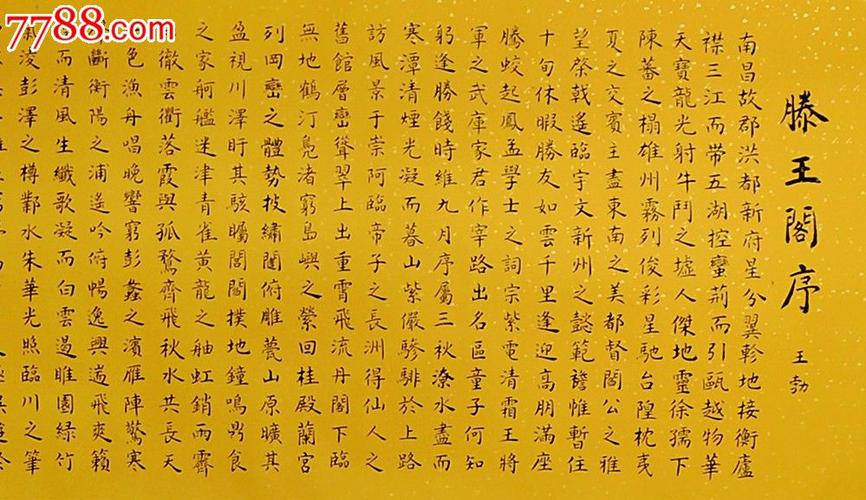 7788.com
中国收藏热线
滕王閣序
王勃
南昌故郡洪都新府星分翼軫地接衡廬
襟三江而帶五湖控蠻荊而引甌越物華
天寶龍光射牛鬥之墟人傑地靈徐孺下
陳蕃之榻雄州霧列俊彩星馳台隍枕夷
夏之交賓主盡東南之美都督閻公之雅
望棨戟遙臨宇文新州之懿範襜惟暫住
十旬休暇勝友如雲千里逢迎高朋滿座
騰蛟起鳳孟學士之詞宗紫電清霜王將
軍之武庫家君作宰路出名區童子何知
躬逢勝餞時維九月序屬三秋潦水盡而
寒潭清煙光凝而暮山紫儼驂騑於上路
訪風景于崇阿臨帝子之長洲得仙人之
舊館層巒聳翠上出重霄飛流丹閣下臨
無地鶴汀鳧渚窮島嶼之縈回桂殿蘭宮
列岡巒之體勢披繡闥俯雕甍山原曠其
盈視川澤盱其駭矚閭閻撲地鐘鳴鼎食
之家舸艦迷津青雀黃龍之舳虹銷雨霽
徹雲衢落霞與孤鶩齊飛秋水共長天
色漁舟唱晚響窮彭蠡之濱雁陣驚寒
斷衡陽之浦遙吟俯暢逸興遄飛爽籟
而清風生纖歌凝而白雲遏睢園綠竹
氣凌彭澤之樽鄴水朱華光照臨川之筆